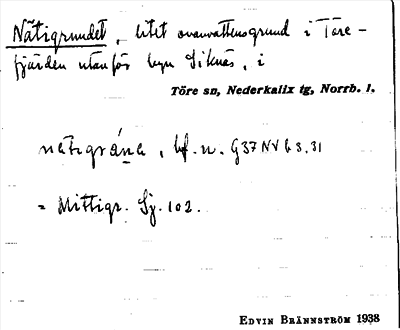 Nätigrundet, litet ovanvattensgrund i Töre-
fjärden utanför byn Siknäs, i
Töre sn, Nederkalix tg, Norrb. l.
nätigrána, bf. n. G37NV63.31
= Mittigr. Sj. 102.
EDVIN BRÄNNSTRÖM 1938